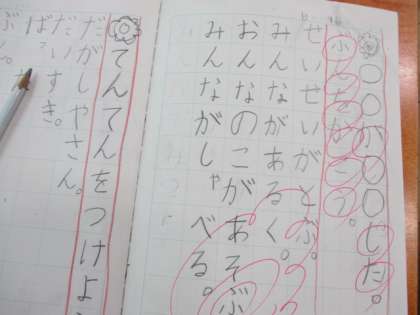 ○○が○○した。
せいせいがとぶ。
みんながあるく。
おんなのこがあそぶ
みんながしゃべる。
てんてんをつけよ
だがしやさん。
だいすき。